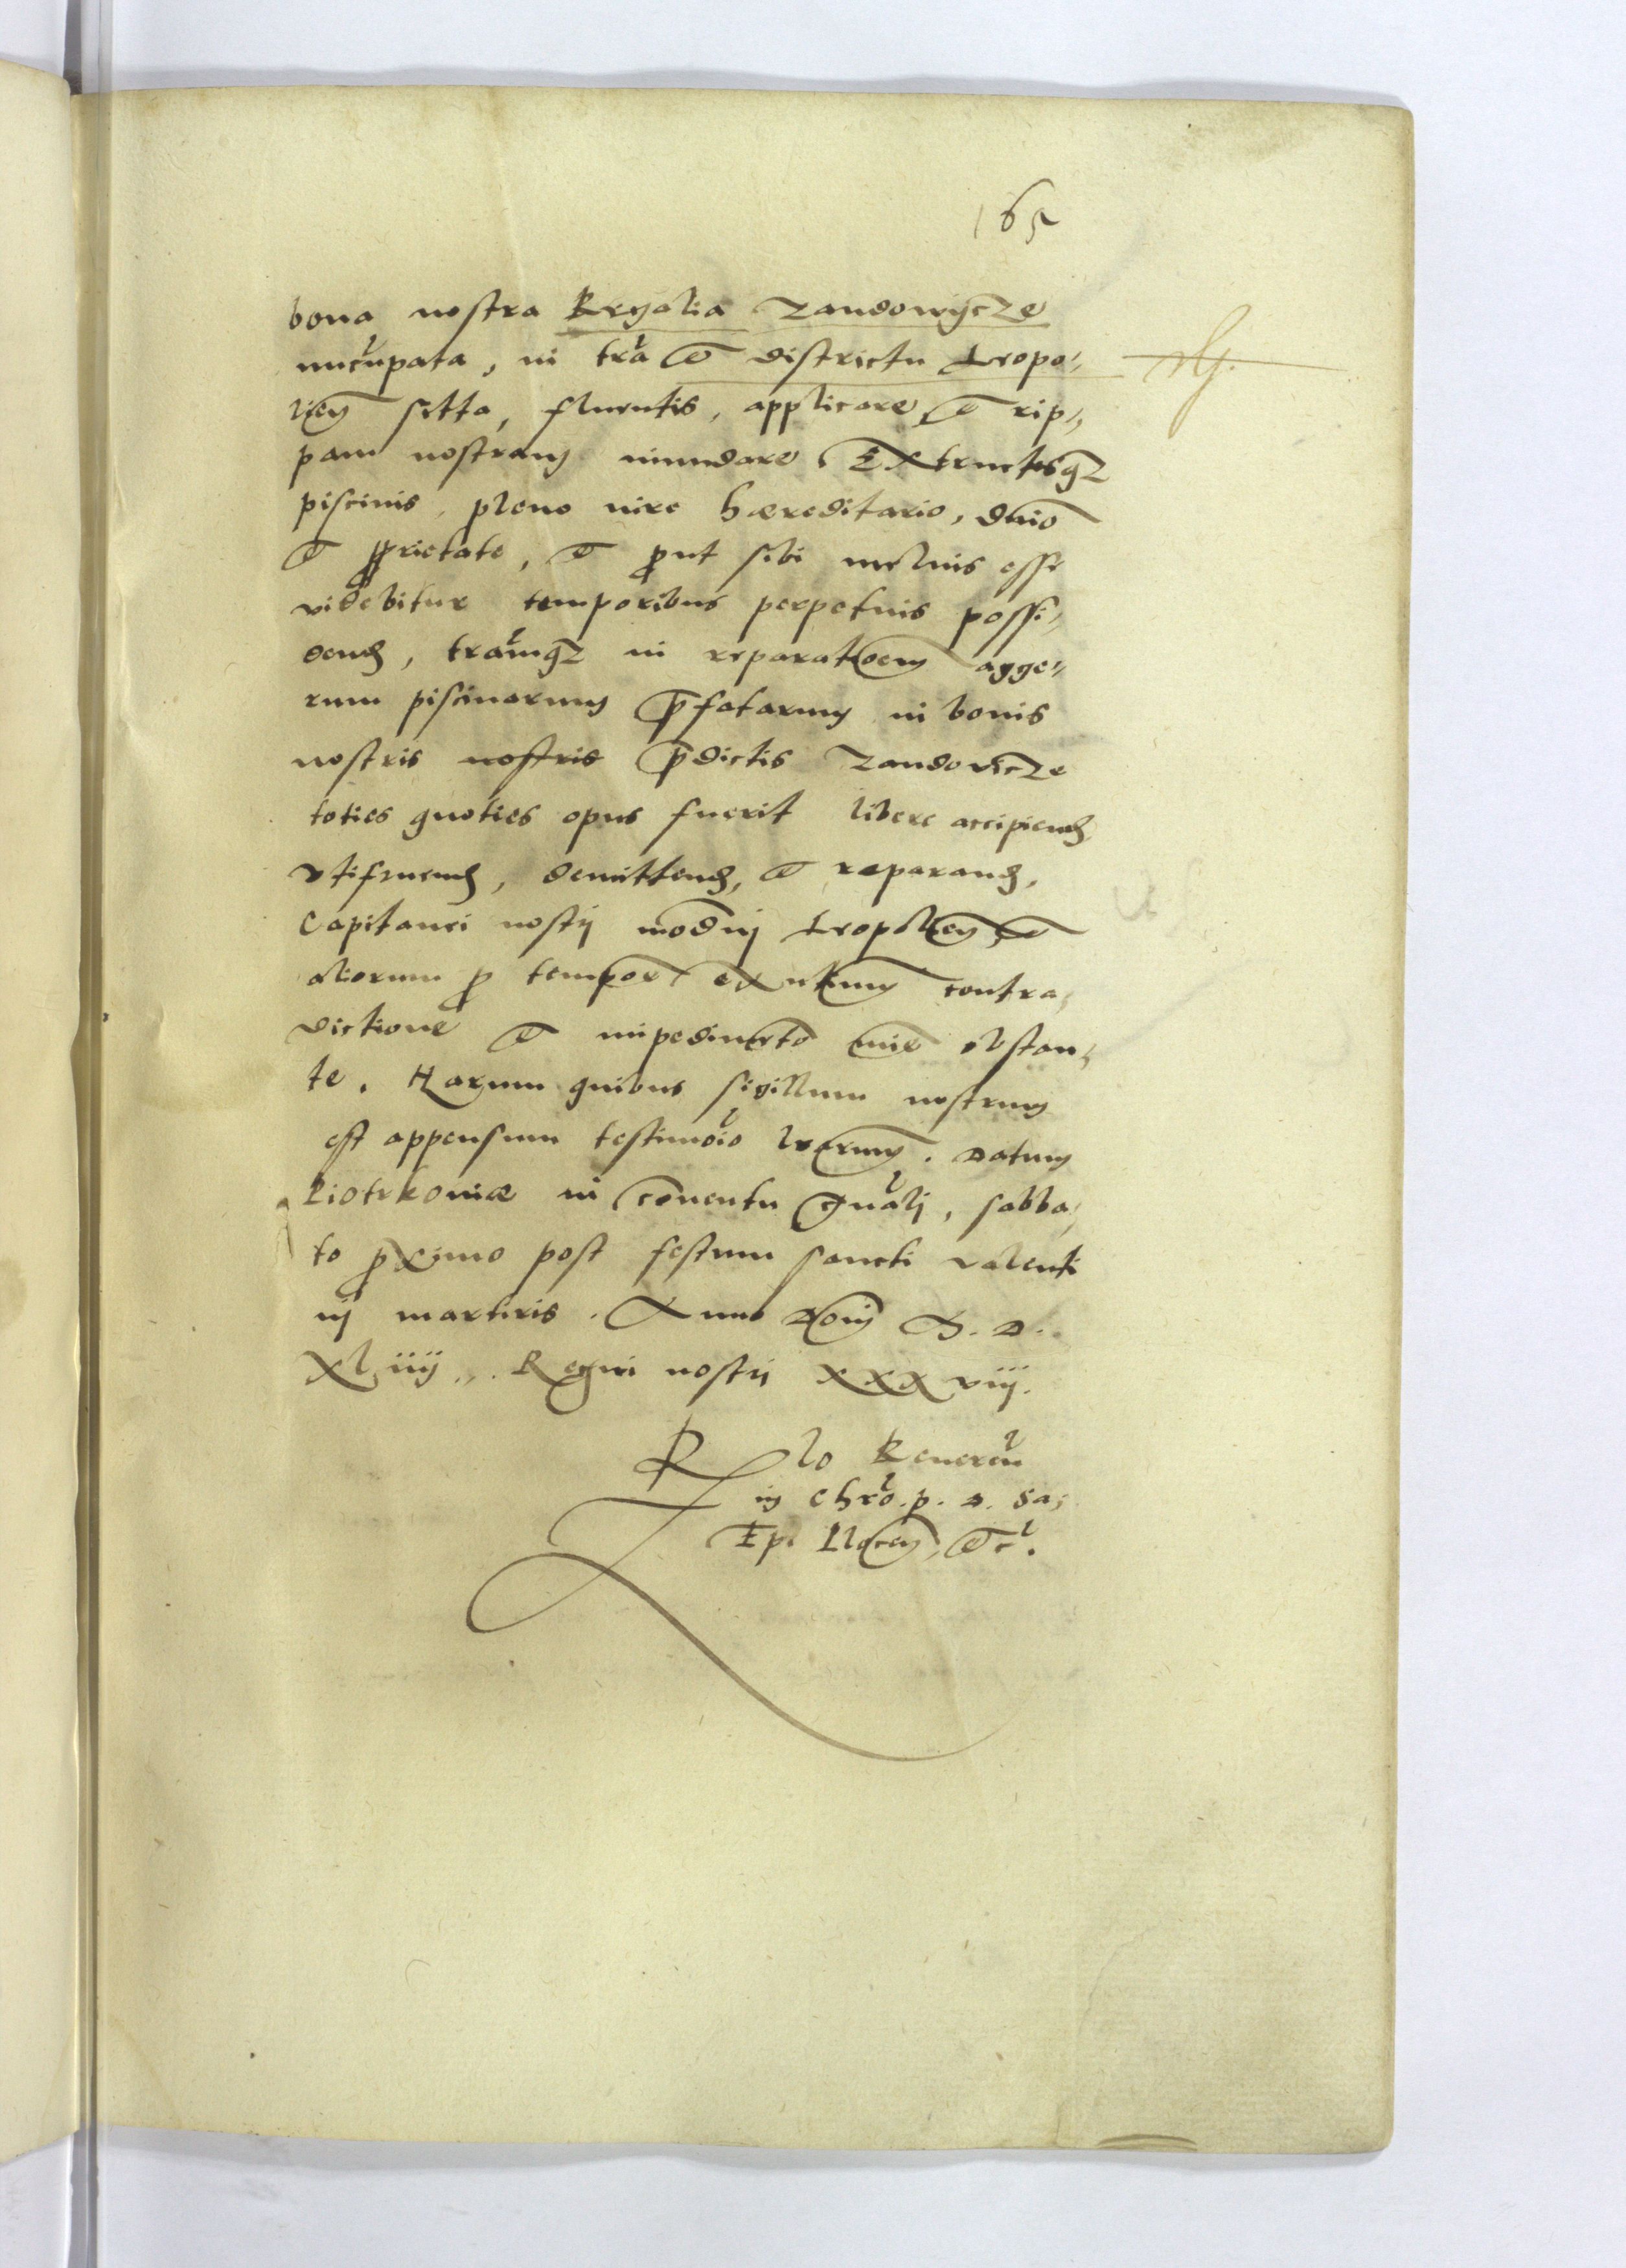 165
bona nostra Regalia Zandowycze
nucupata, in tra et districtu tropo,,
lien sitta, fluentis, applicare et rip,,
pam nostram inundare, Extructisqz
piscinis, pleno iure hæreditario, dnio
et pprietate, et put sibi melius esse
videbitur temporibus perpetuis possi,,
dend, tramqz in reparatioem agge,,
rum piscinarum pfatarum in bonis
nostris nostris pdictis Zandovicze
toties quoties opus fuerit libere accipiend
vtifruend, demittend, et reparand,
Capitanei nostrj modnj tropolien et
aliorum p tempore exntium contra,
dictione et impedimeto mie obstan,
te. Harum quibus sigillum nostrum
est appensum testimoio lrarum. Datum
Piotrkoviæ in conentu gnalj, sabba,
to pximo post festum sancti valenti
nj martiris. Anno Dom M. D.
Xl iiij. Regni nostrj xxxviij.
R lo Reueren
in Chro. p. D. Sa,
Epi Plocen, etc.